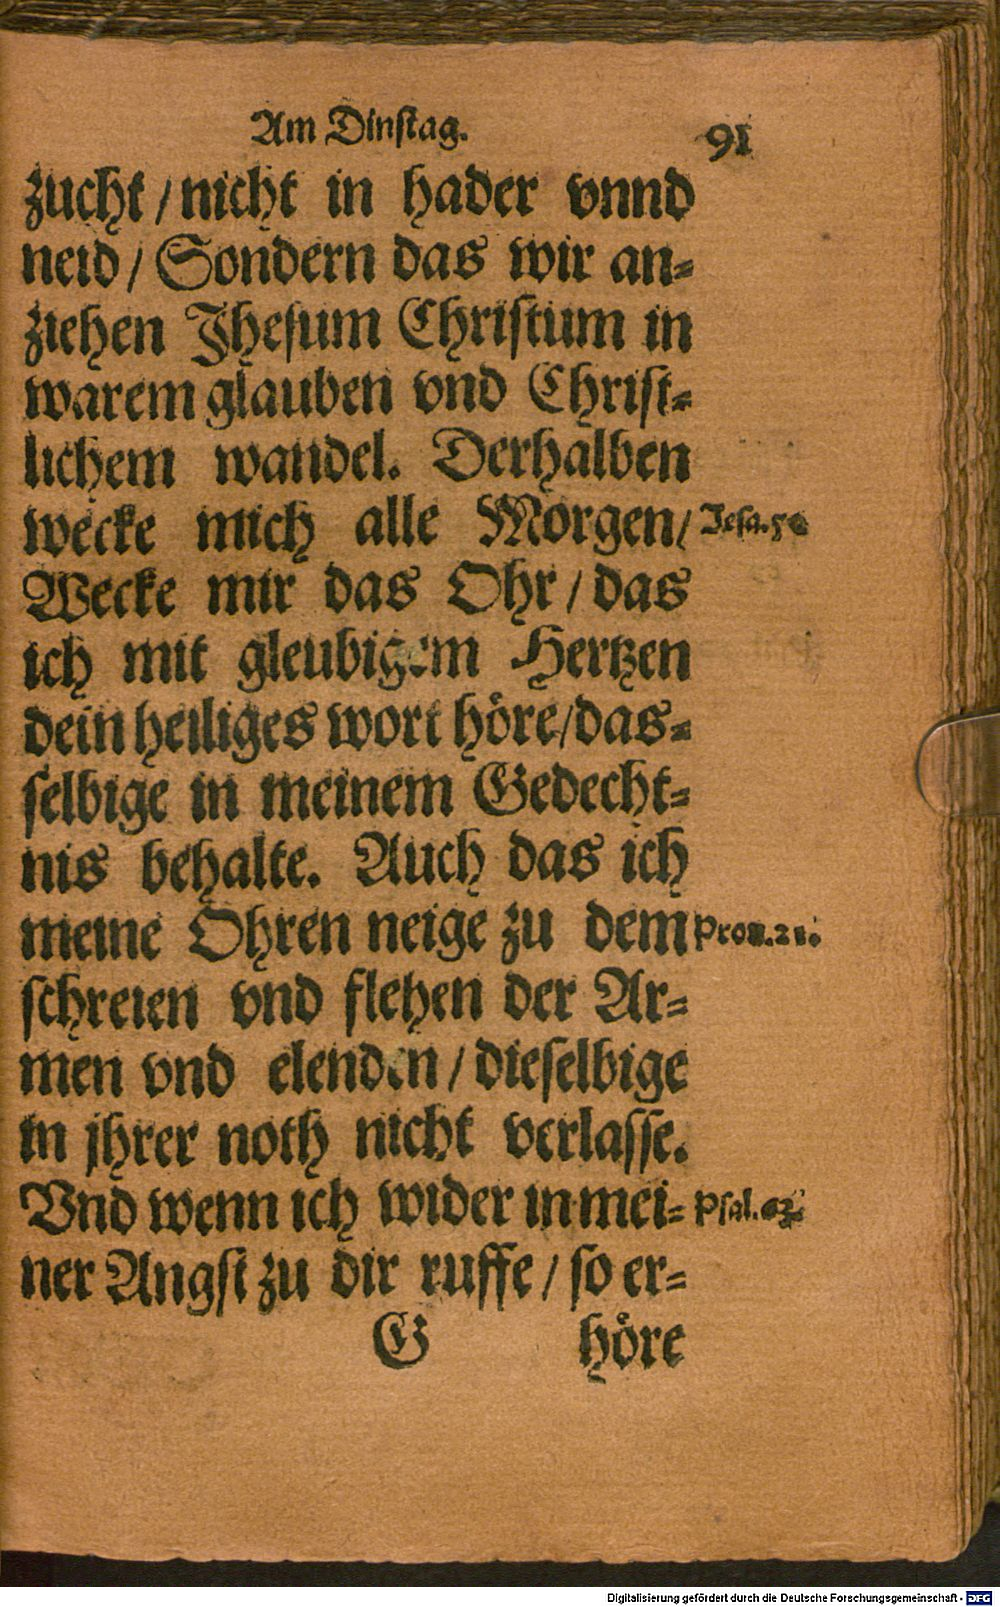 Am Dinstag. 91
zucht / nicht in hader vnnd
neid / Sondern das wir an⸗
ziehen Jhesum Christum in
warem glauben vnd Christ⸗
lichem wandel. Derhalben
wecke mich alle Morgen / Jesa. 50
Wecke mir das Ohr / das
ich mit gleubigem Hertzen
dein heiliges wort höre / das⸗
selbige in meinem Gedecht⸗
nis behalte. Auch das ich
meine Ohren neige zu dem Prou. 21.
schreien vnd flehen der Ar⸗
men vnd elenden / dieselbige
in jhrer noth nicht verlasse.
Vnd wenn ich wider in mei⸗ Psal.
ner Angst zu dir ruffe / so er⸗
G höre
Digitalisierung gefördert durch die Deutsche Forschungsgemeinschaft - DFG